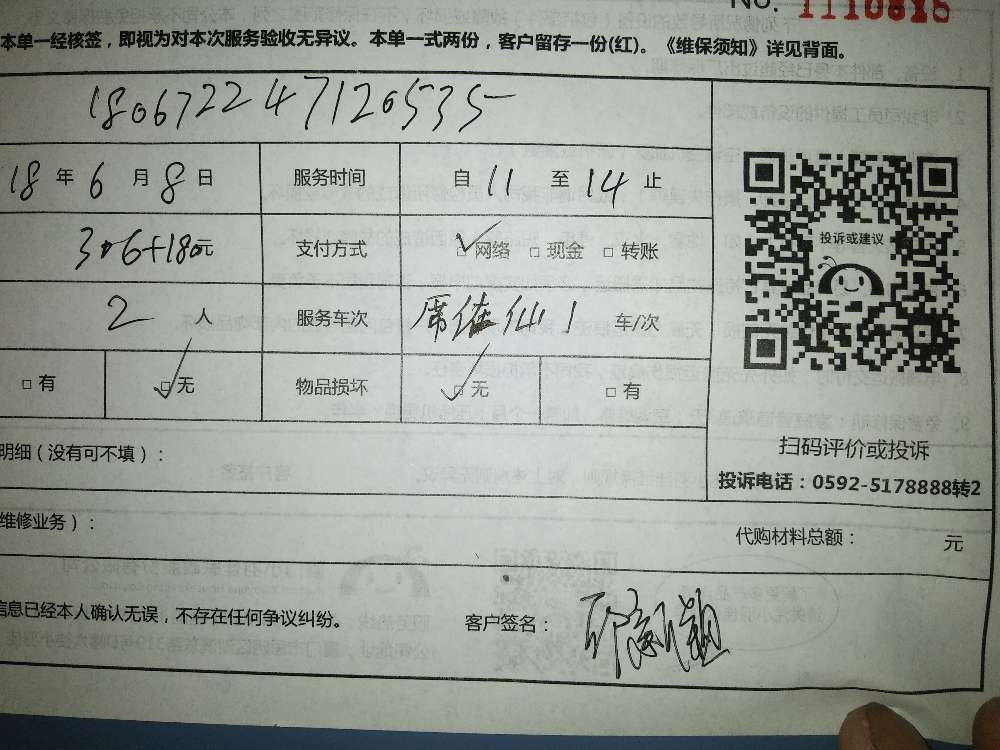 No. 1110816
本单一经核签，即视为对本次服务验收无异议。本单一式两份，客户留存一份(红)。《维保须知》详见背面。
180672247120535
18 年 6 月 8 日 服务时间 自 11 至 14 止
306+180元 支付方式 网络 现金 转账
投诉或建议
2 人 服务车次 1 车/次
有 无 物品损坏 无 有
扫码评价或投诉
明细（没有可不填）：
投诉电话：0592-5178888转2
维修业务）：
代购材料总额： 元
信息已经本人确认无误，不存在任何争议纠纷。 客户签名：